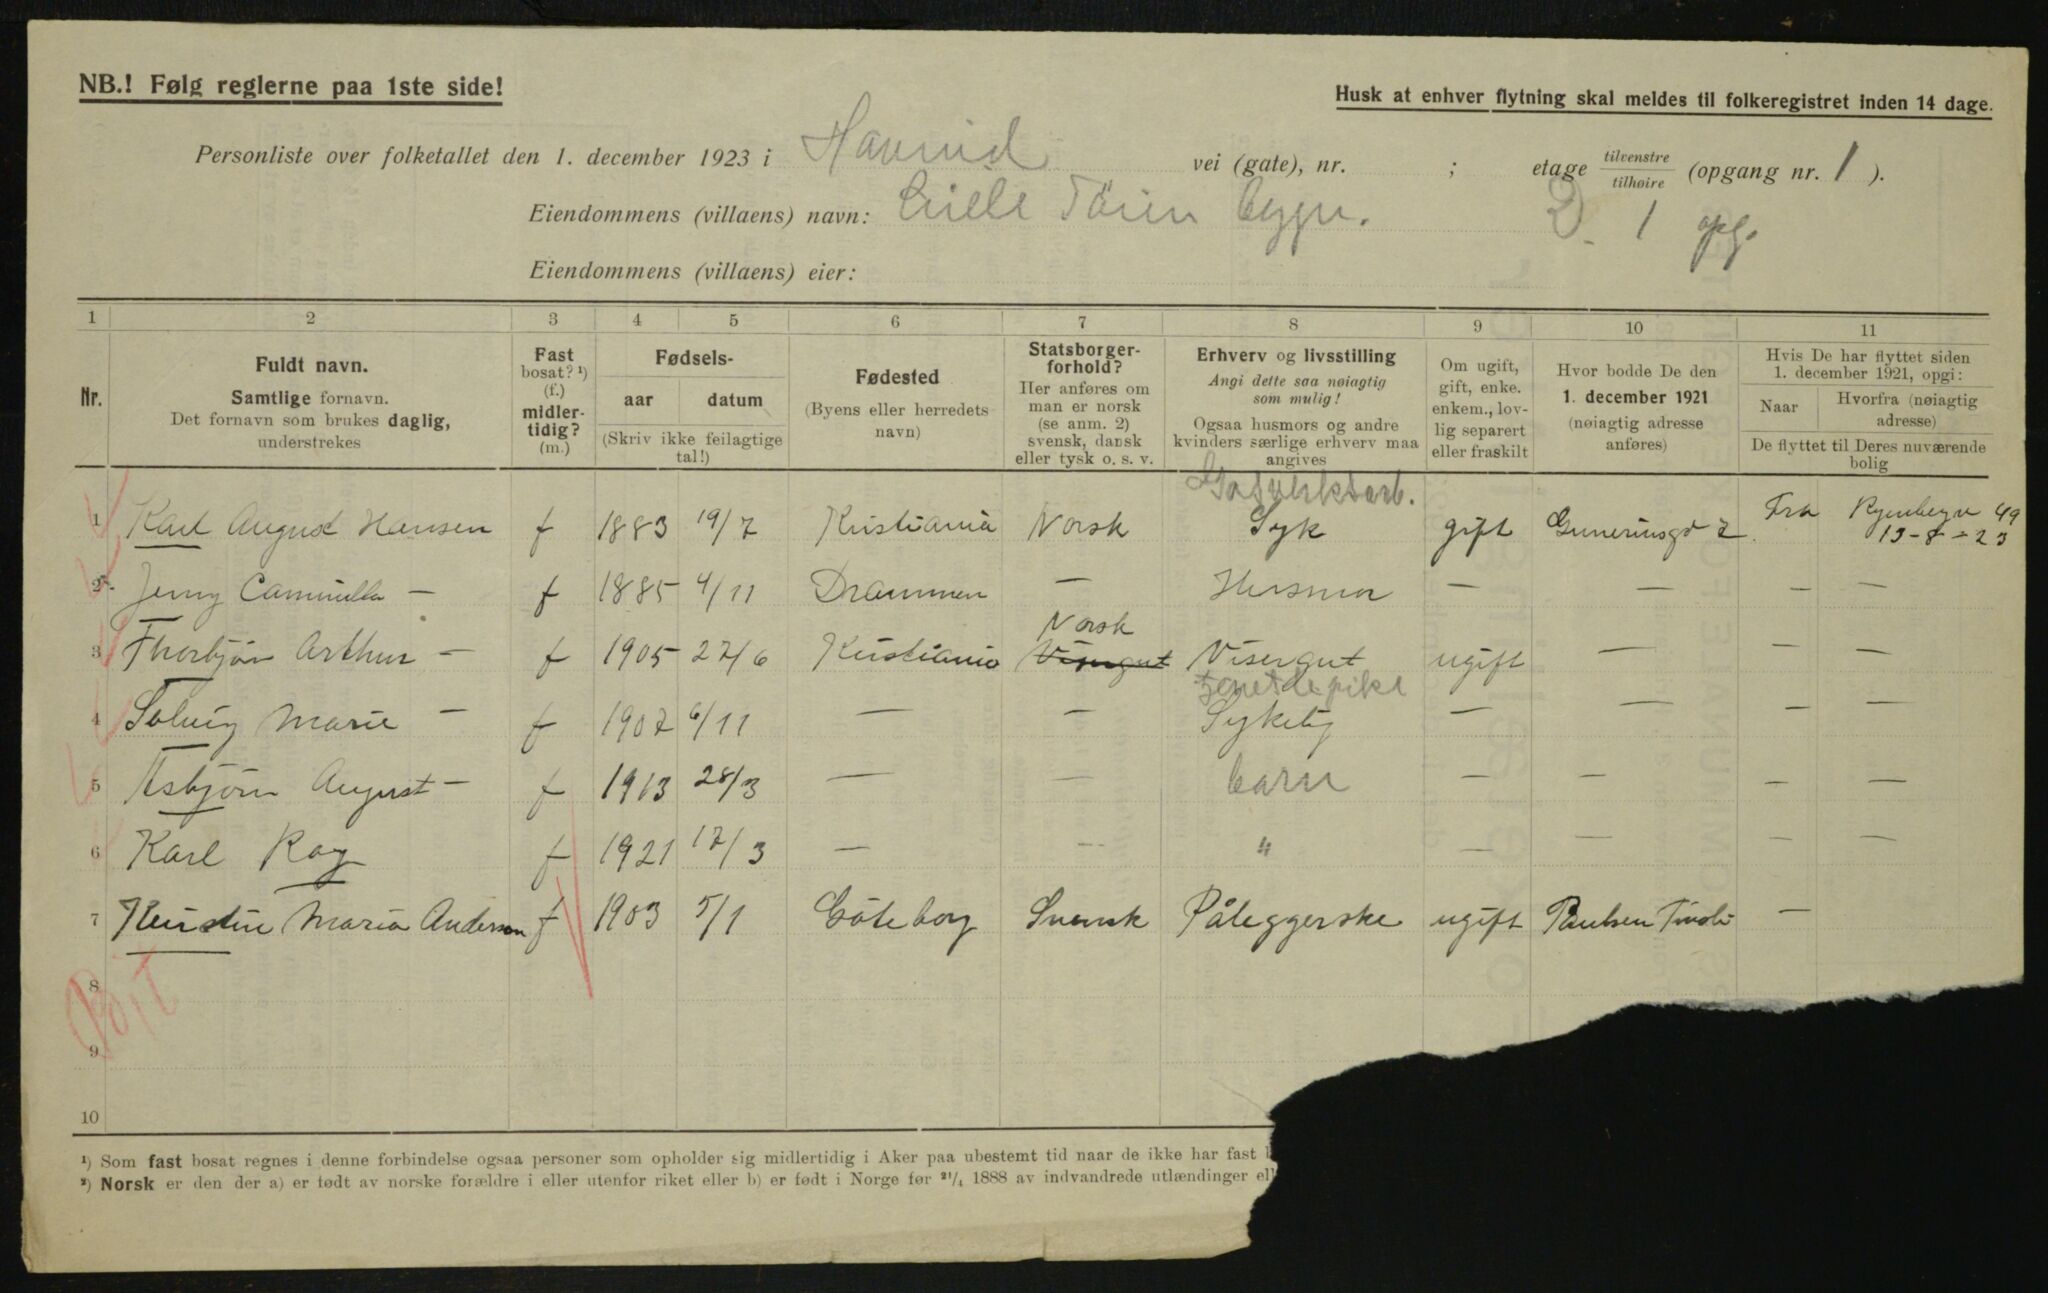 NB.! Følg reglerne paa 1ste side!
Husk at enhver flytning skal meldes til folkeregistret inden 14 dage.
Personliste over folketallet den 1. december 1923 i vei (gate), nr. ; etage tilvenstre tilhøire (opgang nr. 1 ).
Eiendommens (villaens) navn: Lille Tøien 1 opg.
Eiendommens (villaens) eier:
1 2 3 4 5 6 7 8 9 10 11
Nr.
Fuldt navn.
Samtlige fornavn.
Det fornavn som brukes daglig, understrekes
Fast bosat? ¹) (f.) midler-tidig? (m.)
Fødsels-
aar datum
(Skriv ikke feilagtige tal!)
Fødested
(Byens eller herredets navn)
Statsborger-forhold?
Her anføres om man er norsk (se anm. 2) svensk, dansk eller tysk o. s. v.
Erhverv og livsstilling
Angi dette saa nøiagtig som mulig!
Ogsaa husmors og andre kvinders særlige erhverv maa angives
Om ugift, gift, enke. enkem., lov-lig separert eller fraskilt
Hvor bodde De den 1. december 1921 (nøiagtig adresse anføres)
Hvis De har flyttet siden 1. december 1921, opgi:
Naar Hvorfra (nøiagtig adresse)
De flyttet til Deres nuværende bolig
Gasverksarb.
1 Karl August Hansen f 1883 19/7 Kristiania Norsk Syk gift Fra 49
13-8-23
2 Jenny Cammilla — f 1885 4/11 Drammen — Husmor — — — —
Norsk
3 Thorbjørn Arthur — f 1905 27/6 Kristiania Visergut Visergut ugift — — —
4 Solveig Marie — f 1907 6/11 — — Sykelig — — — —
5 Asbjørn August — f 1913 28/3 — — barn — — — —
6 Karl Roy f 1921 17/3 — — " — — — —
7 Kerstin Maria Anderson f 1903 5/1 Göteborg Svensk Påleggerske ugift Paulsen Tivoli —
8
9
10
¹) Som fast bosat regnes i denne forbindelse ogsaa personer som opholder sig midlertidig i Aker paa ubestemt tid naar de ikke har fast
²) Norsk er den der a) er født av norske forældre i eller utenfor riket eller b) er født i Norge før 21/4 1888 av indvandrede utlændinger